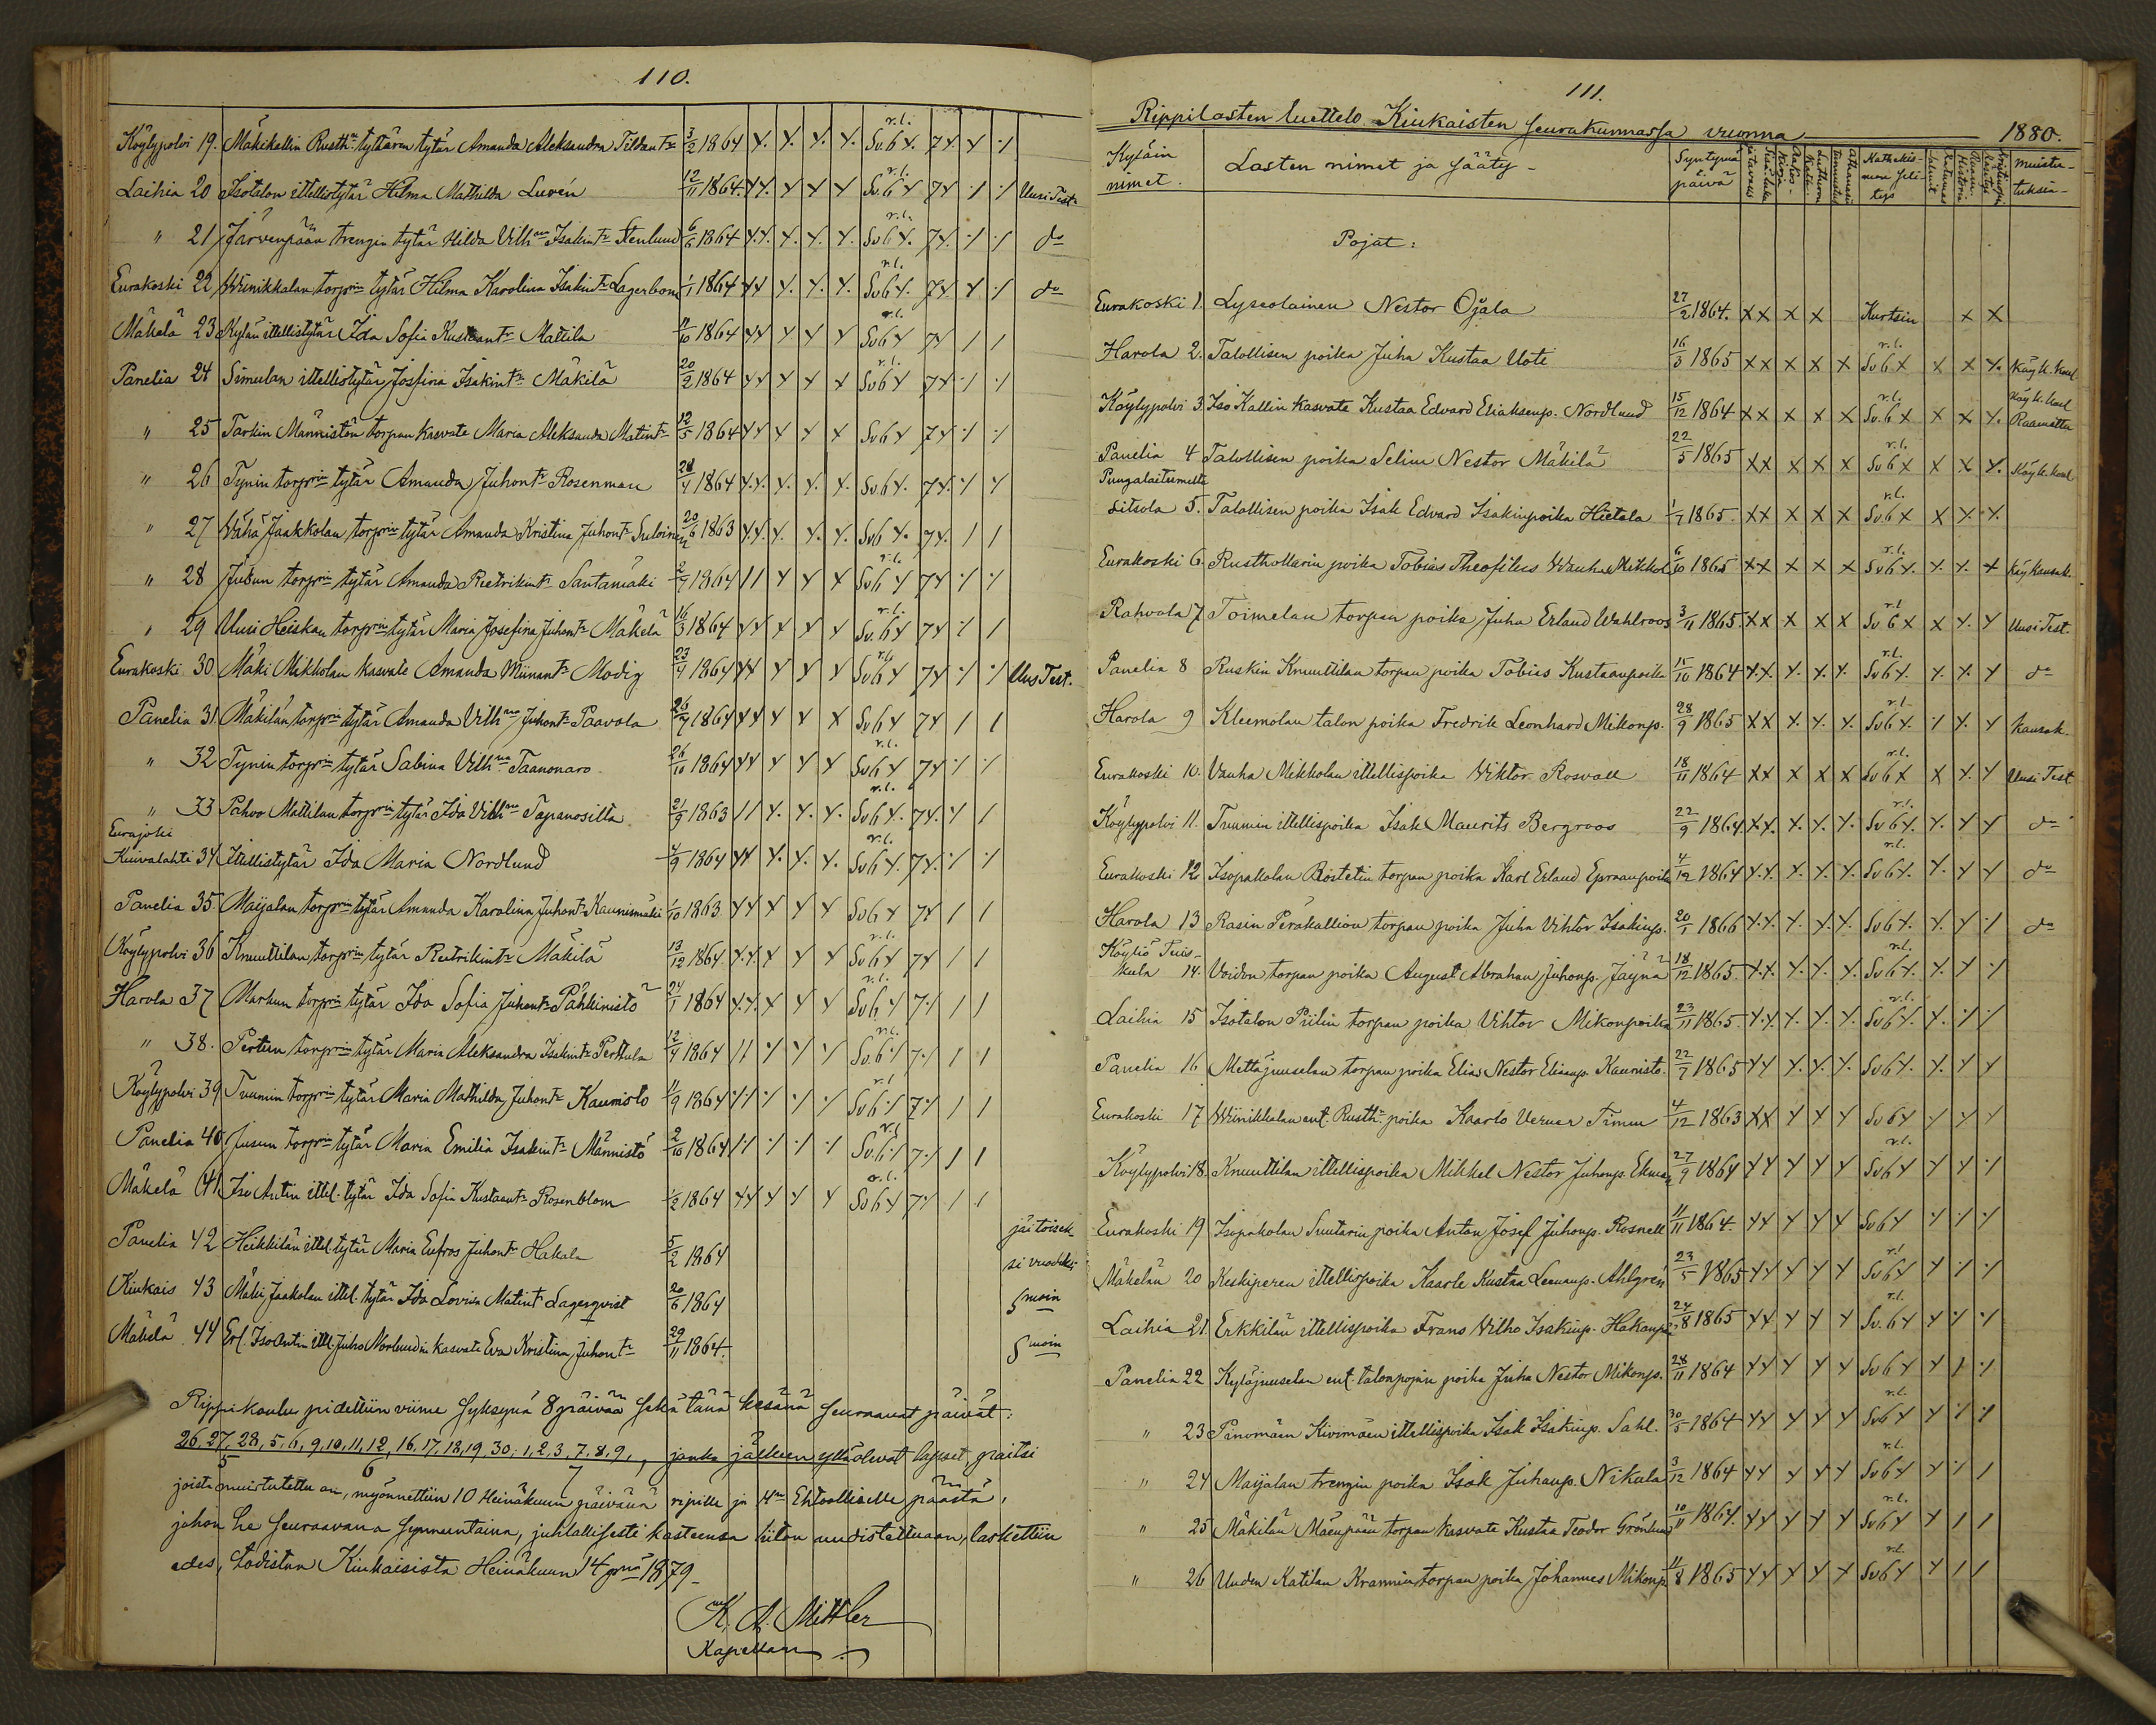 110.
Köylypolvi 19. Mäkikallin Rusth:n tyttären tytär Amanda Aleksandra Fildant:r 3/2 1864 r.l. Sv. 6 7
Laihia 20 Isotalon itellistytär Hilma Mathilda Luvén 12/11 1864. r.l. Sv. 6 7 Uusi Test.
" 21 Järvenpään trengin tytär Hilda Vilh:na Isakint:r Stenlund 6/6 1864 r.l. Sv 6 7 d:o
Eurakoski 22 Wiinikkalan torp:rin tytär Hilma Karolina Isakint:r Lagerbom 1/1 1864 r.l. Sv 6 7 d:o
Mäkelä 23 Kylän itellistytär Ida Sofia Kustaant:r Mattila 4/10 1864 r.l. Sv 6 7
Panelia 24 Simulan itellistytär Josfina Isakint:r Mäkilä 20/2 1864 r.l. Sv 6 7
" 25 Tarkin Männistön torpan kasvate Maria Aleksanda Matint:r 12/5 1864 Sv 6 7
" 26 Tynin torp:rin tytär Amanda Juhont:r Rosenman 28/4 1864 Sv. 6 7
" 27 Wähä Jaakkolan torp:rin tytär Amanda Kristina Juhont:r Suloinen 20/6 1863 Sv 6 7
" 28 Jusun torp:rin tytär Amanda Reetrikint:r Santamäki 2/9 1864 r.l. Sv 6 7
" 29 Uusi Heiskan torp:rin tytär Maria Josefina Juhont:r Mäkelä 16/3 1864 r.l. Sv. 6 7
Eurakoski 30 Mäki Mikkolan kasvate Amanda Miinant:r Modig 23/4 1864 r.l. Sv 6 7 Uus Test.
Panelia 31 Mäkilän torp:rin tytär Amanda Vilh:na Juhont:r Paavola 26/7 1864 Sv 6 7
" 32 Tynin torp:rin tytär Sabina Vilh:na Taanonaro 26/10 1864 r.l. Sv 6 7
" 33 Pahvo Mattilan torp:rin tytär Ida Vilh:na Tapanosilta 21/9 1863 r.l. Sv 6 7
Eurajoki
Kuivalahti 34 Itellistytär Ida Maria Nordlund 4/9 1864 r.l. Sv 6 7
Panelia 35 Maijalan torp:rin tytär Amanda Karolina Juhont:r Kaunismäki 1/10 1863 Sv 6 7
Köylypolvi 36 Knuuttilan torp:rin tytär Reetrikint:r Mäkilä 13/12 1864 r.l. Sv 6 7
Harola 37 Markun torp:rin tytär Ida Sofia Juhont:r Pähkinistö 24/1 1864 r.l. Sv 6 7
" 38. Pertun torp:rin tytär Maria Aleksandra Isakint:r Perttula 12/4 1864 r.l. Sv. 6 7
Köylypolvi 39 Tuumin torp:rin tytär Maria Mathilda Juhont:r Kaunisto 11/9 1864 r.l. Sv 6 7
Panelia 40 Jusun torp:rin tytär Maria Emilia Isakint:r Männistö 2/10 1864 r.l. Sv. 6 7
Mäkelä 41 Iso Antin itlel. tytär Ida Sofia Kustaant:r Rosenblom 1/2 1864 r.l. Sv 6 7
Panelia 42 Heikkilän ittel. tytär Maria Eufros Juhont:r Hakala 5/2 1864 jäi toisek-
si vuodeksi
Kiukais 43 Mäki Jaakolan ittel. tytär Ida Lovisa Matint:r Lagerqvist 20/6 1864 S:moin
Mäkelä 44 Erl. Iso Antin ittl. Juho Norlundin kasvate Eva Kristina Juhont:r 29/11 1864. S:moin
Rippikoulu pidettiin viime syksynä 8 päivää sekä tänä kesänä seuraavat päivät:
26, 27, 28, 5, 6, 9, 10, 11, 12, 16, 17, 18, 19, 30; 1, 2, 3, 7, 8, 9, jonka jälkeen ylläolevat lapset, paitsi
5 6 7
joista muistutettu on, myönnettiin 10 Heinäkuun päivänä ripille ja H:n Ehtoolliselle päästä,
johon he seuraavana sunnuntaina, juhlallisesti kasteensa liiton uudistettuaan, laskettiin
edes, todistan Kiukaisista Heinäkuun 14 p:nä 1879
K. A. Mittler
Kapellan
111.
Rippilasten luettelo Kiukaisten seurakunnassa vuonna 1880.
Kyläin nimet. Lasten nimet ja sääty Syntymä päivä Muistutuksia
Pojat:
Eurakoski 1. Lyseolainen Nestor Ojala 27/2 1864. Kurtsin
Harola 2. Talollisen poika Juha Kustaa Uoti 16/3 1865 r.l. Sv 6 Käy k. koul
Köylypolvi 3. Iso Kallin kasvate Kustaa Edvard Eliaksenp. Nordlund 15/12 1864 r.l. Sv. 6 Käy k. koul Raamattu
Panelia 4 Talollisen poika Selim Nestor Mäkilä 22/5 1865 r.l. Sv 6 Käy k. koul
Pungalaitumelta
Litsola 5. Talollisen poika Isak Edvard Isakinpoika Hietala 1/7 1865. r.l. Sv 6
Eurakoski 6. Rusthollarin poika Tobias Theofilus Wanha Mikkola 6/10 1865 r.l. Sv 6 Käy kansak.
Rahvola 7 Toimelan torpan poika Juha Erland Wahlroos 3/11 1865. r.l. Sv 6 Uusi Test.
Panelia 8 Ruskin Knuuttilan torpan poika Tobias Kustaanpoika 15/10 1864 r.l. Sv 6 d:o
Harola 9 Kleemolan talon poika Fredrik Leonhard Mikonp. 28/9 1865 r.l. Sv 6 Kansak.
Eurakoski 10. Vanha Mikkolan itellispoika Wiktor Rosvall 18/11 1864 r.l. Sv 6 Uusi Test
Köylypolvi 11. Tuumin itellispoika Isak Maurits Bergroos 22/9 1864 r.l. Sv 6 d:o
Eurakoski 12 Isopakolan Rostetin torpan poika Karl Erland Epraanpoika 4/12 1864 r.l. Sv 6 d:o
Harola 13 Rasin Peräkallion torpan poika Juha Vihtor Isakinp. 20/1 1866 Sv 6 d:o
Köyliö Tuis-
kula 14. Voidon torpan poika August Abraham Juhonp. Jäynä 18/12 1865. r.l. Sv 6
Laihia 15 Isotalon Piilin torpan poika Vihtor Mikonpoika 23/11 1865. r.l. Sv 6
Panelia 16 Mettäjuuselan torpan poika Elias Nestor Eliaanp. Kaunisto 22/7 1865 Sv 6
Eurakoski 17 Wiinikkalan ent. Rusth:n poika Kaarlo Verner Timm 4/12 1863 Sv 6
Köylypolvi 18. Knuuttilan itellispoika Mikkel Nestor Juhonp. Ekman 27/9 1864 r.l. Sv 6
Eurakoski 19 Isopakolan Suutarin poika Anton Josef Juhonp. Rosnell 11/11 1864. Sv 6
Mäkelän 20 Keskiperen itellispoika Kaarle Kustaa Leenanp. Ahlgrén 23/5 1865 r.l. Sv 6
Laihia 21. Erkkilän itellispoika Frans Vilho Isakinp. Hakanpää 24/8 1865 r.l. Sv. 6
Panelia 22 Kyläjuuselan ent. talonpojan poika Juha Nestor Mikonp. 28/11 1864 Sv 6
" 23 Pänomäen Kivimäen itellispoika Isak Isakinp. Sahl. 30/5 1864 r.l. Sv 6
" 24 Maijalan trengin poika Isak Juhanp. Nikula 3/12 1864 r.l. Sv 6
" 25 Mäkilän Mäenpään torpan kasvate Kustaa Teodor Grönlund 10/11 1864. r.l. Sv 6
" 26 Uuden Katilan Krannin torpan poika Johannes Mikonp. 11/8 1865 r.l. Sv 6